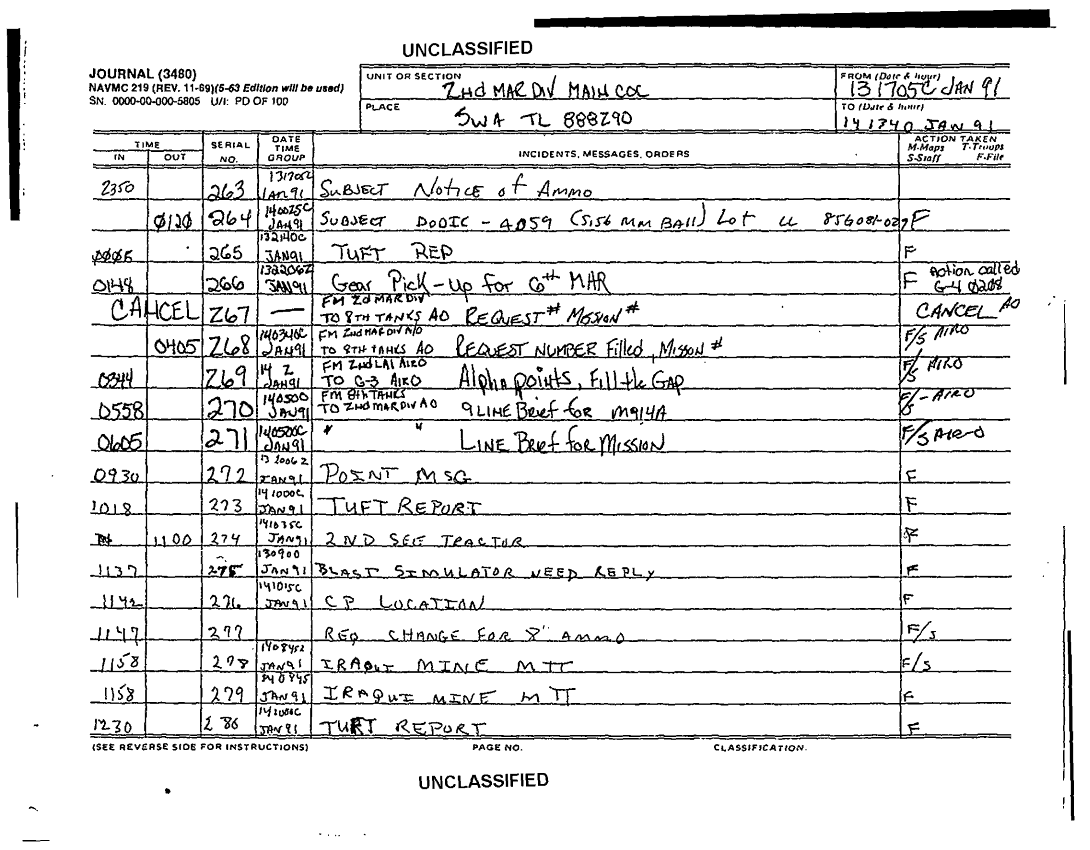 UNCLASSIFIED
JOURNAL (3480)
NAVMC 219 (REV. 11-69)(5-63 Edition will be used)
SN. 0000-00-000-5805 U/I: PD OF 100
UNIT OR SECTION
2Nd MAR DIV MAIN COC
PLACE
SWA TL 888290
FROM (Date & hour)
131705C JAN 91
TO (Date & hour)
141740 JAN 91
TIME
IN OUT
SERIAL NO.
DATE TIME GROUP
INCIDENTS, MESSAGES, ORDERS
ACTION TAKEN
M-Maps T-Troops
S-Staff F-File
2350 263 JAN 91 SUBJECT NOTICE of AMMO
0120 264 140025C JAN91 SUBJECT DODIC - A059 (5.56 MM BAll) Lot F
0005 265 132140C JAN91 TUFT REP F
0148 266 132206Z JAN91 Gear Pick-Up for 6th MAR F Action called G-4 0208
CANCEL 267 — FM 2d MAR DIV TO 8TH TANKS AO REQUEST # MISSION # CANCEL AO
0405 268 140340C JAN91 FM 2nd MAR DIV A/O TO 8TH TANKS AO REQUEST NUMBER Filled, Mission # F/S AIRO
0344 269 14 Z JAN91 FM 2nd LAI AIRO TO G-3 AIRO Alpha points, Fill the GAP F/S AIRO
0558 270 140500 JAN91 FM 8th TANKS TO 2nd MAR DIV AO 9 LINE Brief for M914A F/S - AIRO
0605 271 140520C JAN91 " " LINE Brief for MISSION F/S AIRO
0930 272 JAN91 POINT MSG F
1018 273 141000C JAN91 TUFT REPORT F
1100 274 141035C JAN91 2ND SEE TRACTOR F
1137 275 130900 JAN91 BLAST SIMULATOR NEED REPLY F
1142 276 141015C JAN91 CP LOCATION F
1147 277 REQ CHANGE FOR 8" AMMO F/S
1158 278 140845Z JAN91 IRAQUI MINE MTT F/S
1158 279 JAN91 IRAQUI MINE MTT F
1230 280 JAN91 TUFT REPORT F
(SEE REVERSE SIDE FOR INSTRUCTIONS) PAGE NO. CLASSIFICATION.
UNCLASSIFIED